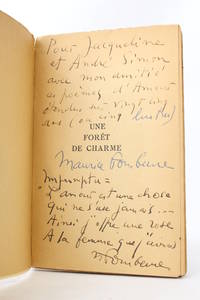 Pour Jacqueline
et André Simon
avec mon amitié
poèmes d'Amour
sur vingt cinq
ans
UNE
FORÊT
DE CHARME
Maurice Fombeure
Impromptu =
L'amour est une chose
qui ne s'use jamais...
Ainsi j'offre une rose
A la femme que j'avais
M Fombeure